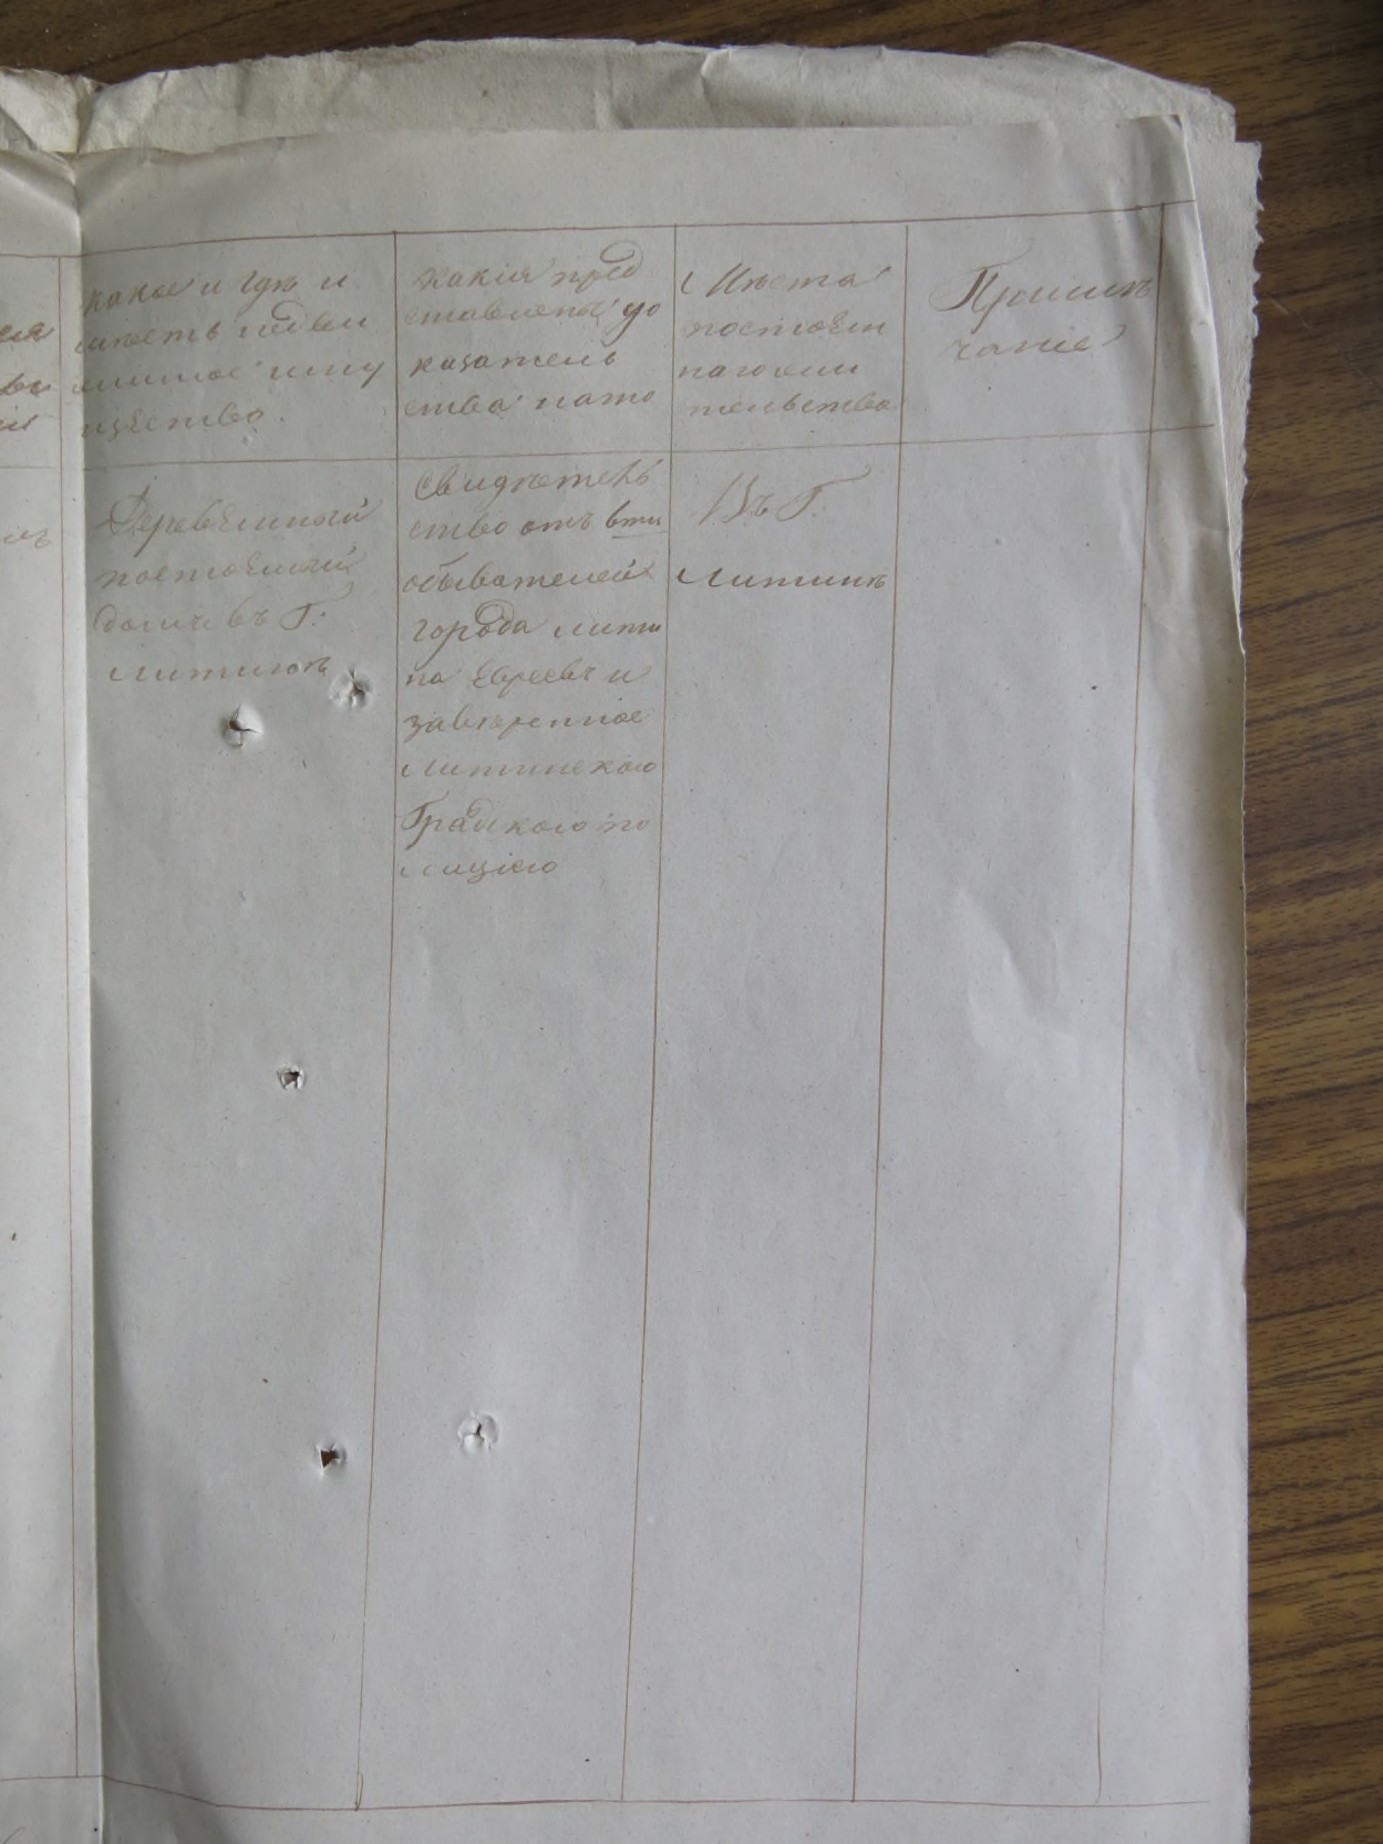 какое и гдѣ и
мѣетъ недви
жимое иму
щество.
какія пред
ставлены до
казатель
ства на то
Мѣсто
постоян
наго жи
тельства
Примѣ
чаніе
Деревянный
постоялый
домъ въ Г.
Литинѣ
Свидѣтель
ство отъ
обывателей
города Лити
на Евреевъ и
завѣренное
Литинскою
Градскою по
лиціею
Въ Г.
Литинѣ